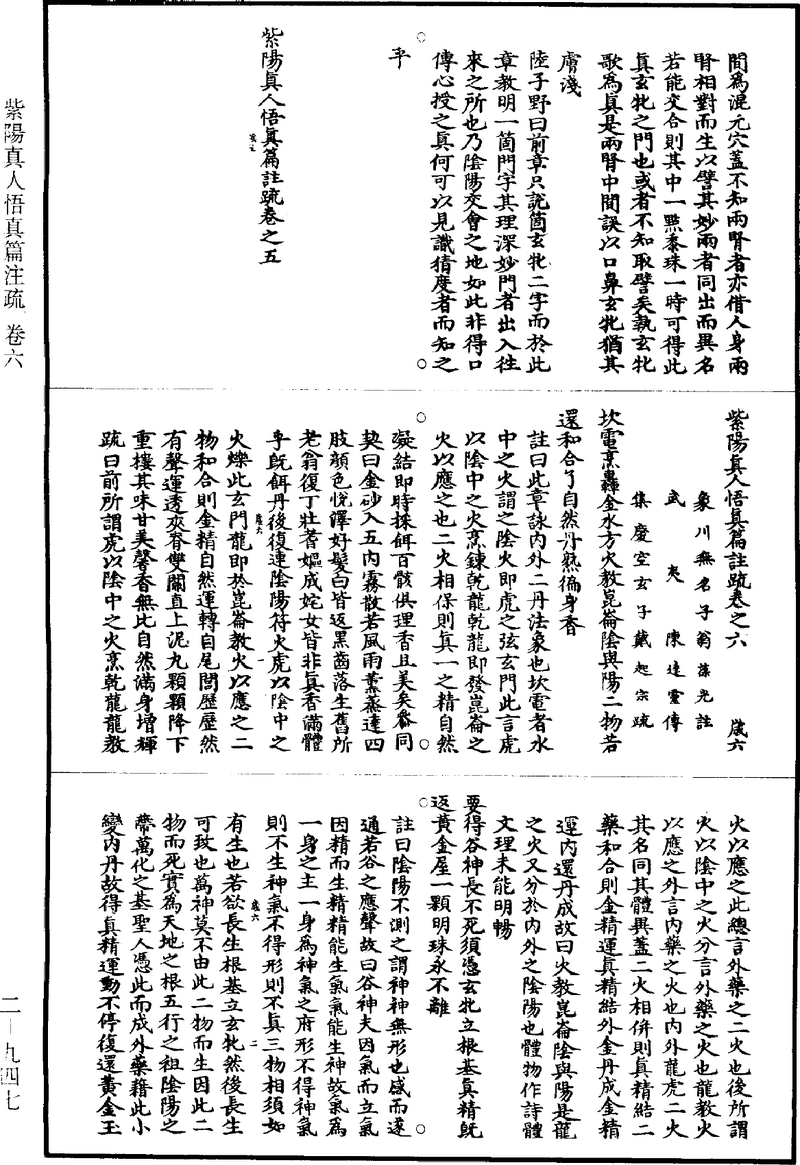 紫陽真人悟真篇注疏 卷六
二—九四七
間為混元穴蓋不知兩腎者亦借人身兩
腎相對而生以譬其妙兩者同出而異名
若能交合則其中一點黍珠一時可得此
真玄牝之門也或者不知取譬矣執玄牝
歌為真是兩腎中間誤以口鼻玄牝猶其
膚淺
陸子野曰前章只說箇玄牝二字而於此
章教明一箇門字其理深妙門者出入往
來之所也乃陰陽交會之地如此非得口
傳心授之真何可以見識猜度者而知之
乎
紫陽真人悟真篇註疏卷之五
紫陽真人悟真篇註疏卷之六 歲六
象川無名子翁葆光註
武夷陳達靈傳
集慶空玄子戴起宗疏
坎電烹轟金水方火教崑崙陰與陽二物若
還和合了自然丹熟徧身香
註曰此章詠內外二丹法象也坎電者水
中之火謂之陰火即虎之弦玄門此言虎
以陰中之火烹鍊乾龍乾龍即發崑崙之
火以應之也二火相保則真一之精自然
凝結即時採餌百骸俱理香且美矣叅同
契曰金砂入五內霧散若風雨薰蒸達四
肢顏色悅澤好髮白皆返黑齒落生舊所
老翁復丁壯耆嫗成姹女皆非真香滿體
乎既餌丹後復運陰陽符火虎以陰中之
火爍此玄門龍即於崑崙教火以應之二
物和合則金精自然運轉自尾閭歷歷然
有聲運透夾脊雙關直上泥九顆顆降下
重樓其味甘美馨香無比自然滿身增輝
疏曰前所謂虎以陰中之火烹乾龍龍教
火以應之此總言外藥之二火也後所謂
火以陰中之火分言外藥之火也龍教火
以應之外言內藥之火也內外龍虎二火
其名同其體異蓋二火相併則真精結二
藥和合則金精運真精結外金丹成金精
運內還丹成故曰火教崑崙陰與陽是龍
之火又分於內外之陰陽也體物作詩體
文理未能明暢
要得谷神長不死須憑玄牝立根基真精既
返黃金屋一顆明珠永不離
註曰陰陽不測之謂神神無形也感而遂
通若谷之應聲故曰谷神夫因氣而立氣
因精而生精精能生氣氣能生神故氣為
一身之主一身為神氣之府形不得神氣
則不生神氣不得形則不真三物相須如
有生也若欲長生根基立玄牝然後長生
可致也萬神莫不由此二物而生因此二
物而死實為天地之根五行之祖陰陽之
帶萬化之基聖人憑此而成外藥藉此小
變內丹故得真精運動不停復還黃金玉